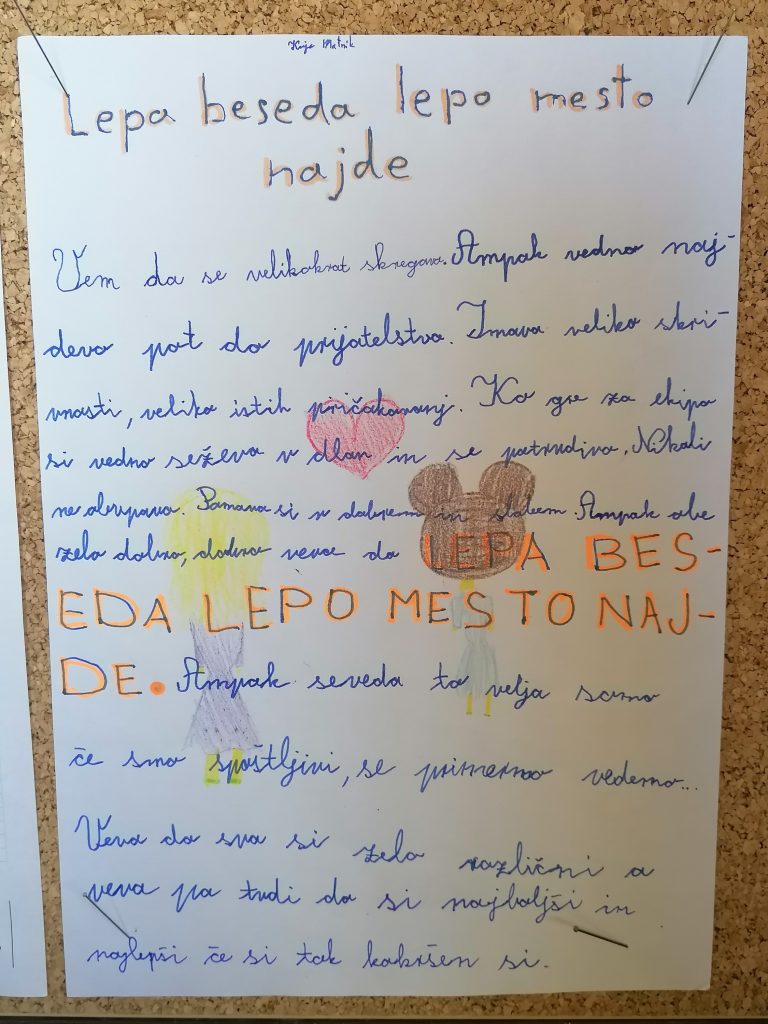 Lepa beseda lepo mesto
najde
Vem da se velikokrat skregava. Ampak vedno naj-
deva pot do prijatelstva. Imava veliko skri-
vnosti, veliko istih pričakovanj. Ko gre za ekipo
si vedno seževa v dlan in se potrudiva. Nikoli
ne obupava. Pomava si v dobrem in slabem. Ampak obe
zelo dobro, dobro veva da LEPA BES-
EDA LEPO MESTO NAJ-
DE. Ampak seveda to velja samo
če smo spoštljivi, se primerno vedemo...
Veva da sva si zelo različni a
veva pa tudi da si najboljši in
najlepši če si tak kakršen si.